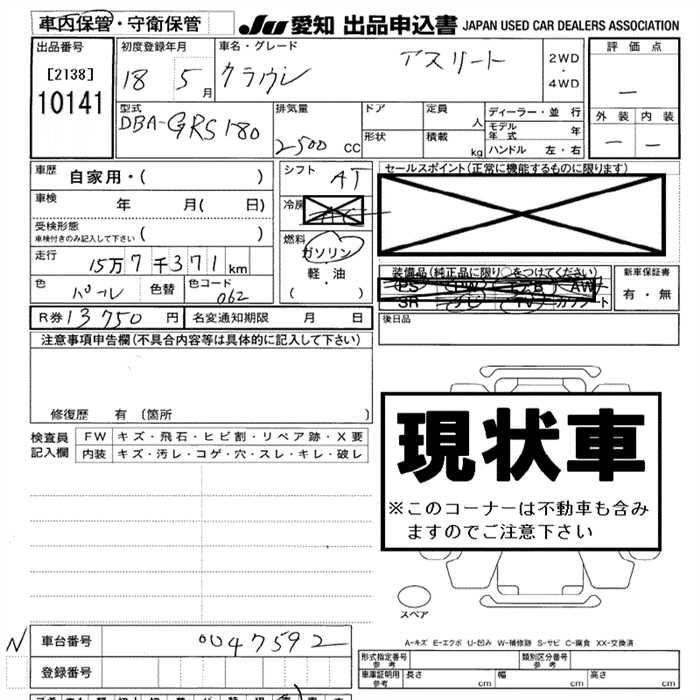 車内保管・守衛保管
JU 愛知 出品申込書 JAPAN USED CAR DEALERS ASSOCIATION
出品番号
[2138]
10141
初度登録年月
18 5月
車名・グレード
クラウン アスリート
2WD
・
4WD
評価点
―
外装 内装
― ―
型式
DBA-GRS180
排気量
2500 CC
ドア
形状
定員 人
積載 kg
ディーラー・並行
モデル年式 年
ハンドル 左・右
車歴 自家用・( )
車検 年 月( 日)
受検形態
車検付きのみ記入して下さい ( )
走行 15万7千371km
色 パール 色替 色コード 062
シフト AT
冷房 AC
燃料
ガソリン
軽・油
( ・ )
セールスポイント(正常に機能するものに限ります)
装備品(純正品に限り○をつけてください)
PS PW エアB AW
SR ナビ TV カワシート
新車保証書
有・無
R券 13750 円 名変通知期限 月 日
後日品
注意事項申告欄(不具合内容等は具体的に記入して下さい)
修復歴 有 〔箇所 〕
検査員記入欄
FW キズ・飛石・ヒビ割・リペア跡・X要
内装 キズ・汚レ・コゲ・穴・スレ・キレ・破レ
現状車
※このコーナーは不動車も含み
ますのでご注意下さい
スペア
A-キズ E-エクボ U-凹み W-補修跡 S-サビ C-腐食 XX-交換済
N
車台番号 0047592
登録番号
形式指定番号 参考
類別区分番号 参考
車庫証明用 参考 長さ cm 幅 cm 高さ cm